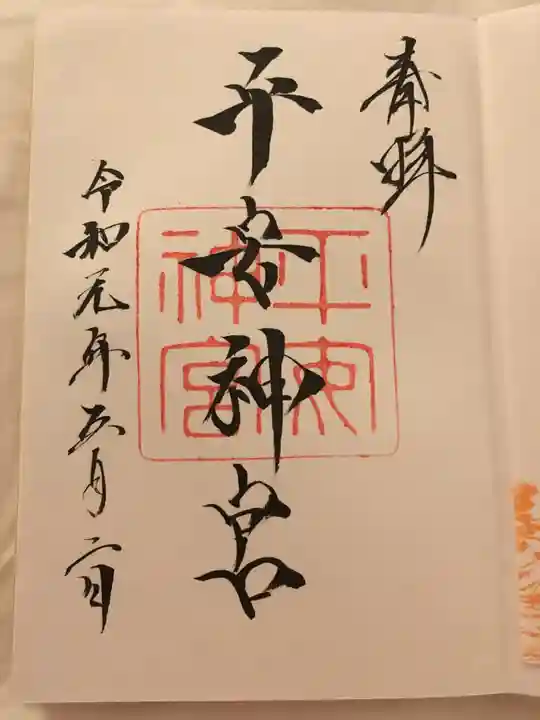 奉拝
平安神宮
平安神宮
令和元年五月二日